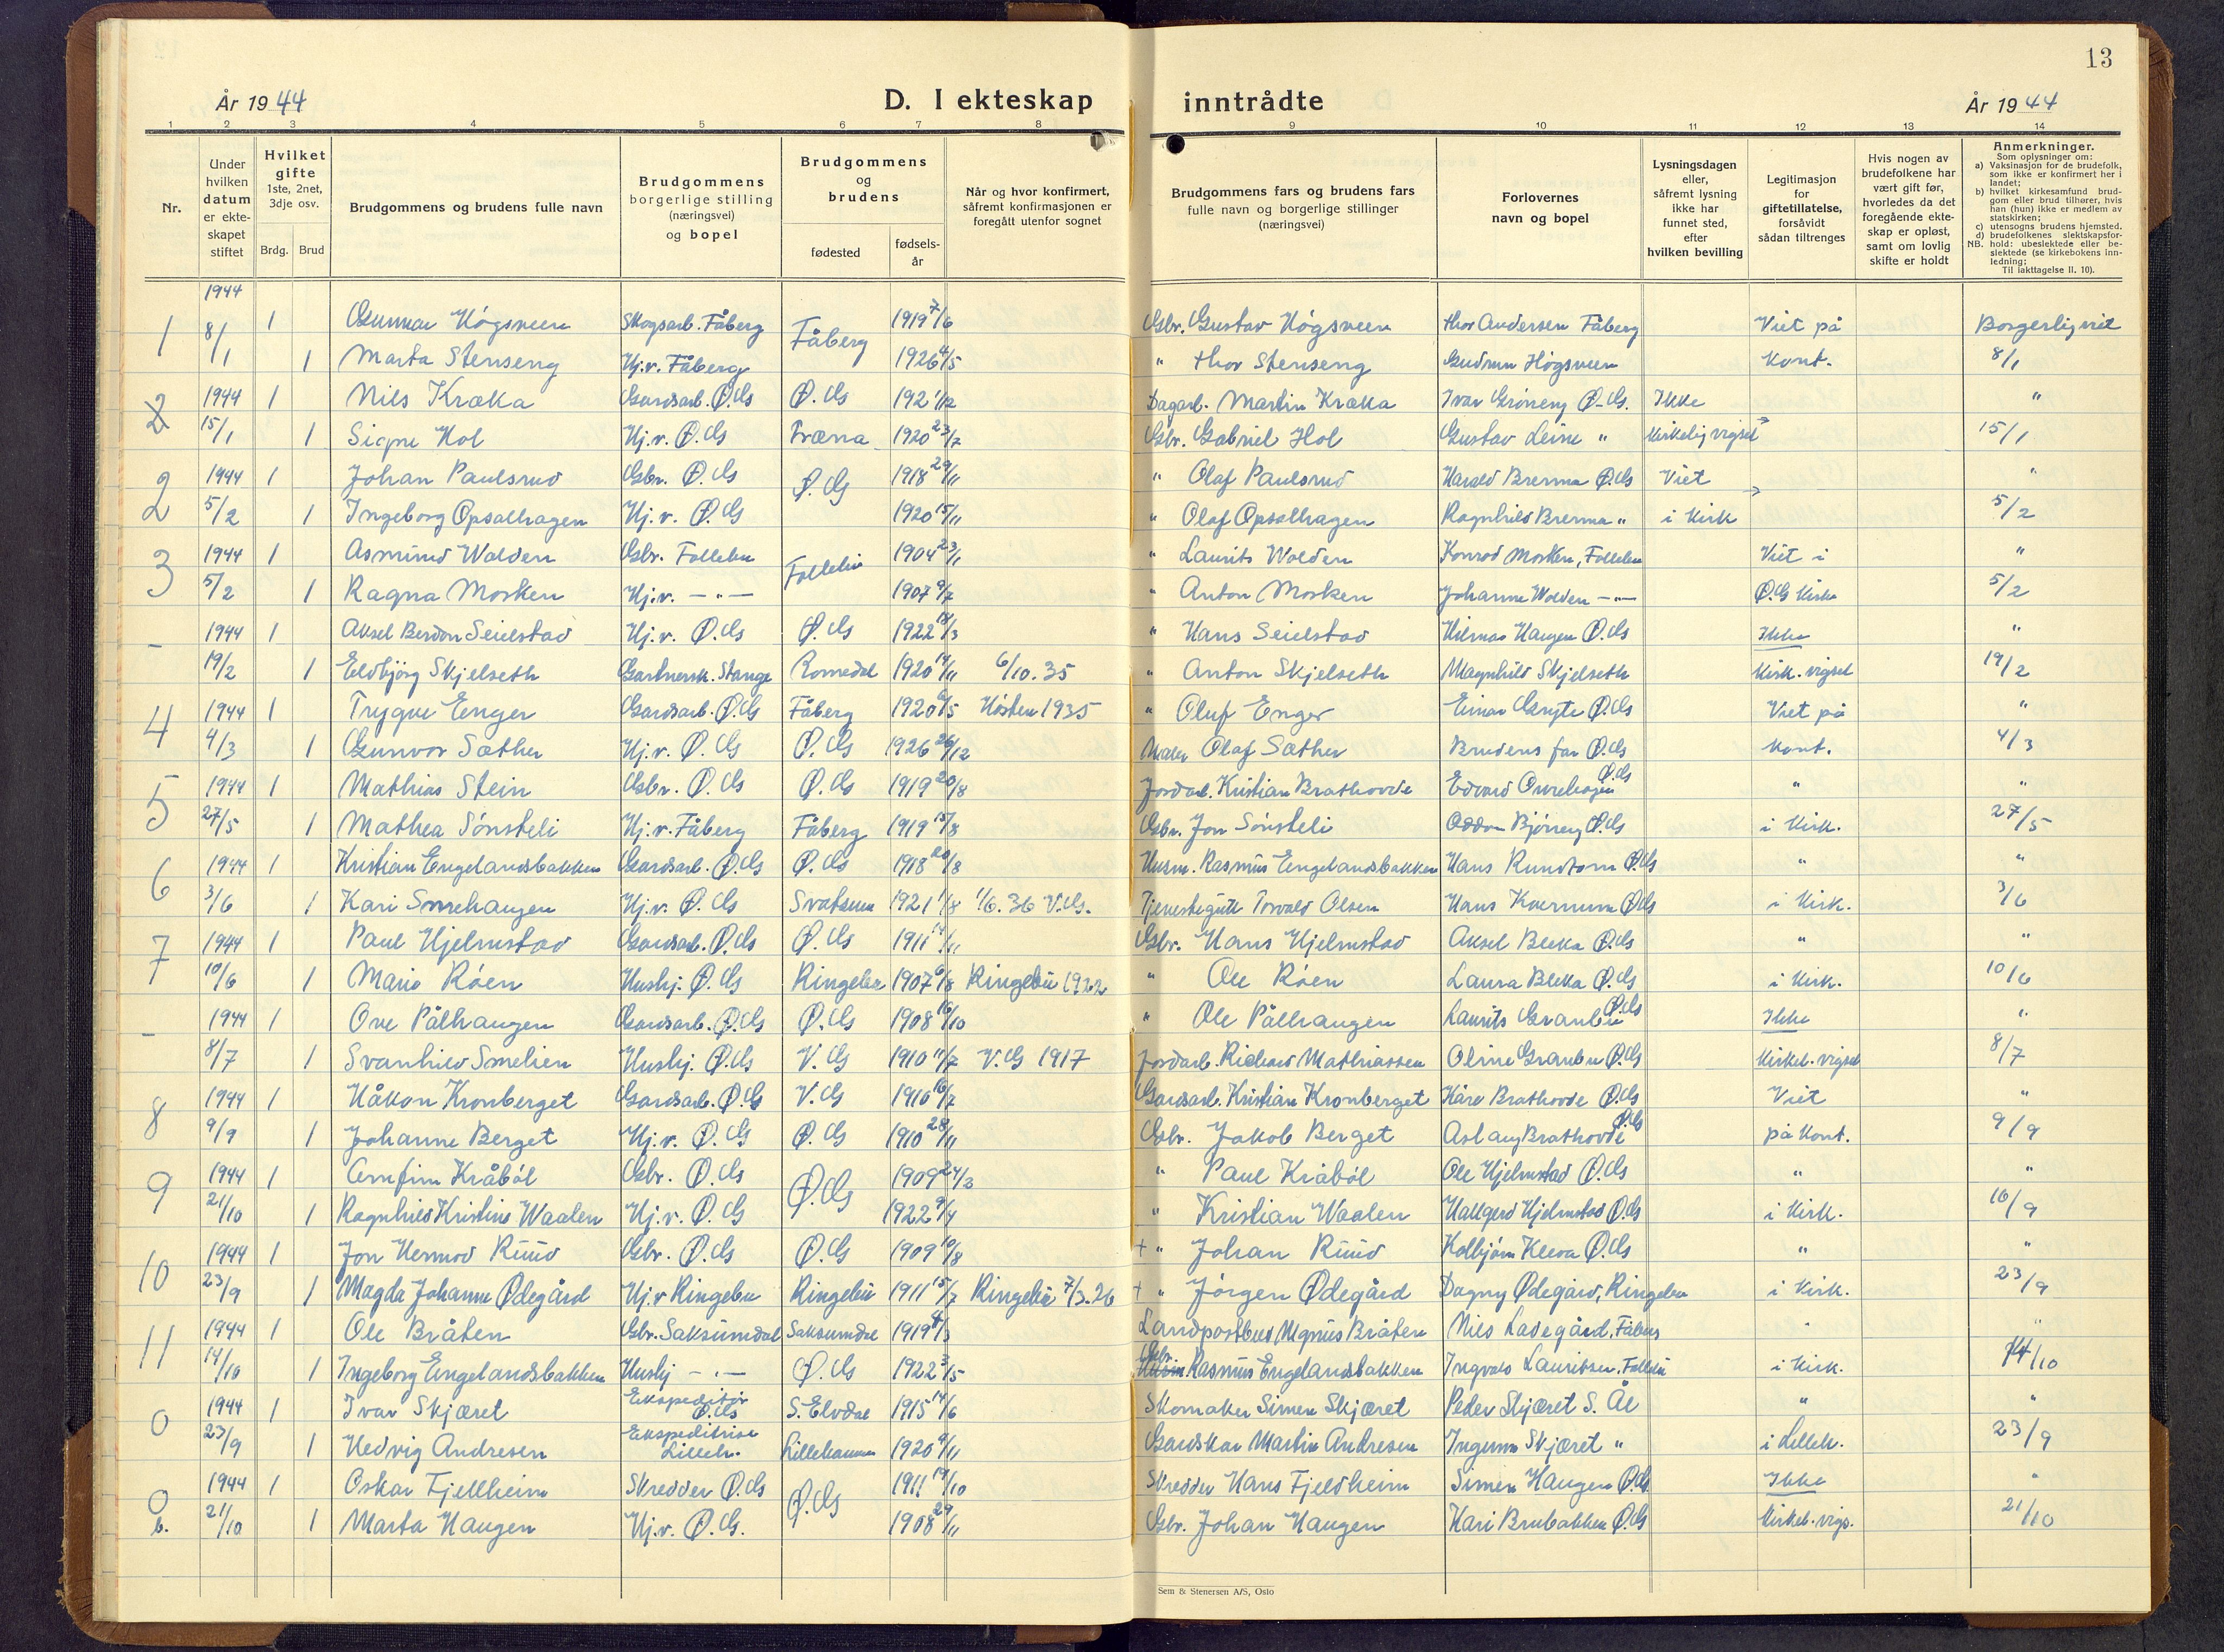 År 1944
D. I ekteskap
inntrådte
År 1944
13
1 2 3 4 5 6 7 8 9 10 11 12 13 14
Nr.
Under hvilken datum er ekteskapet stiftet
Hvilket gifte 1ste, 2net, 3dje osv.
Brdg. Brud
Brudgommens og brudens fulle navn
Brudgommens borgerlige stilling (næringsvei) og bopel
Brudgommens og brudens
fødested
fødselsår
Når og hvor konfirmert, såfremt konfirmasjonen er foregått utenfor sognet
Brudgommens fars og brudens fars fulle navn og borgerlige stillinger (næringsvei)
Forlovernes navn og bopel
Lysningsdagen eller, såfremt lysning ikke har funnet sted, efter hvilken bevilling
Legitimasjon for giftetillatelse, forsåvidt sådan tiltrenges
Hvis nogen av brudefolkene har vært gift før, hvorledes da det foregående ekteskap er opløst, samt om lovlig skifte er holdt
Anmerkninger.
Som oplysninger om:
a) Vaksinasjon for de brudefolk, som ikke er konfirmert her i landet;
b) hvilket kirkesamfund brudgom eller brud tilhører, hvis han (hun) ikke er medlem av statskirken;
c) utensogns brudens hjemsted.
d) brudefolkenes slektskapsforhold: ubeslektede eller beslektede (se kirkebokens innledning;
NB. Til iakttagelse II. 10).
1944
1 8/1 1 Gunnar Högsveen Skogsarb. Fåberg Fåberg 1919 7/6 Gbr. Gustav Högsveen Thor Andersen Fåberg Viet på Borgerlig viet
1 Marta Stenseng Hj.v. Fåberg 1926 4/5 " Thor Stenseng Gudrun Högsveen Kont. 8/1
2 1944 1 Nils Kræka Gardsarb. Ø.G Ø.G 1921 Dagarb. Martin Kræka Ivar Gröneng Ø-G. Ikke "
15/1 1 Signe Hol Hj.v. Ø.G Fræna 1920 23/7 Gbr. Gabriel Hol Gustav Leine " Kirkelig vigsel 15/1
2 1944 1 Johan Paulsrud Gbr. Ø.G Ø.G 1918 29/11 " Olaf Paulsrud Harald Brenna Ø.G Viet "
2 5/2 1 Ingeborg Opsalhagen Hj.v. Ø.G 1920 15/11 " Olaf Opsalhagen Ragnhild Brenna " i Kirk 5/2
3 1944 1 Asmund Wolden Gbr. Follebu Follebu 1904 23/1 " Laurits Wolden Konrad Mosken, Follebu Viet i "
5/2 1 Ragna Mosken Hj.v. — " — 1907 9/2 " Anton Mosken Johanne Wolden — " — Ø.G Kirke 5/2
- 1944 1 Aksel Berdon Seielstad Hj.v. Ø.G Ø.G 1922 18/3 " Hans Seielstad Hilmar Haugen Ø.G Ikke "
19/2 1 Eldbjörg Skjelseth Gartnersk. Stange Romedal 1920 14/11 6/10.35 " Anton Skjelseth Magnhild Skjelseth Kirk. vigsel 19/2
4 1944 1 Trygve Enger Gardsarb. Ø.G Fåberg 1920 6/5 Hösten 1935 " Oluf Enger Einar Gryte Ø.G Viet på "
4/3 1 Gunvor Sæther Hj.v. Ø.G Ø.G 1926 26/12 Maler Olaf Sæther Brudens far Ø.G Kont. 4/3
5 1944 1 Mathias Stein Gbr. Ø.G Ø.G 1919 20/8 Jordarb. Kristian Brathovde Edvard Ø.G " "
27/5 1 Mathea Sönsteli Hj.v. Fåberg Fåberg 1919 15/8 Gbr. Jon Sönsteli Oddon Bjørneng Ø.G i Kirk. 27/5
6 1944 1 Kristian Engelandsbakken Gardsarb. Ø.G Ø.G 1918 20/8 Husm. Rasmus Engelandsbakken Hans Rundtom Ø.G " "
3/6 1 Kari Smrehaugen Hj.v. Ø.G Svatsum 1921 1/8 1/6.36 V.G. Tjenestegutt Torvald Olsen Hans Kvernum Ø.G i Kirk. 3/6
7 1944 1 Paul Hjelmstad Gardsarb. Ø.G Ø.G 1911 14/11 Gbr. Hans Hjelmstad Aksel Bleka Ø.G " "
10/6 1 Marie Röen Hushj. Ø.G Ringebu 1907 6/8 Ringebu 1922 " Ole Röen Laura Bleka Ø.G i Kirk. 10/6
- 1944 1 Ove Pålhaugen Gardsarb. Ø.G Ø.G 1908 16/10 " Ole Pålhaugen Laurits Granbu Ø.G Ikke "
8/7 1 Svanhild Smelien Hushj. Ø.G V.G 1910 11/7 V.G 1917 Jordarb. Richard Mathiassen Oline Granbu Ø.G Kirkel. vigsel 8/7
8 1944 1 Håkon Kronberget Gardsarb. Ø.G V.G 1916 16/7 Gardsarb. Kristian Kronberget Kåre Brathovde Ø.G Viet "
9/9 1 Johanne Berget Hj.v. Ø.G Ø.G 1910 28/11 Gbr. Jakob Berget Aslaug Brathovde Ø.G på Kont. 9/9
9 1944 1 Arnfinn Kråböl Gbr. Ø.G Ø.G 1909 24/3 " Paul Kråböl Ole Hjelmstad Ø.G " "
21/10 1 Ragnhild Kristine Waalen Hj.v. Ø.G 1922 9/4 " Kristian Waalen Hallgerd Hjelmstad Ø.G i Kirk. 16/9
10 1944 1 Jon Hermod Ruud Gbr. Ø.G Ø.G 1909 10/8 + " Johan Ruud Kolbjörn Kleva Ø.G " "
23/9 1 Magda Johanne Ødegård Hj.v Ringebu Ringebu 1911 15/7 Ringebu 7/3.26 + " Jörgen Ødegård Dagny Ødegård, Ringebu i Kirk. 23/9
11 1944 1 Ole Bråten Gbr. Saksumdal Saksumdal 1919 Landpostbud Magnus Bråten Nils Ladegård, Fåberg " "
14/10 1 Ingeborg Engelandsbakken Hushj — " — Ø.G 1922 3/5 Gbr. Husm. Rasmus Engelandsbakken Ingvald Lauritsen, Follebu i Kirk. 14/10
0 1944 1 Ivar Skjæret Ekspeditör Ø.G S. Elvdal 1915 14/6 Skomaker Simen Skjæret Peder Skjæret S. Ål " "
23/9 1 Hedvig Andresen Ekspeditrise Lilleh. Lillehammer 1920 9/11 Gardskar Martin Andresen Ingunn Skjæret " i Lilleh. 23/9
0 1944 1 Oskar Fjellheim Skredder Ø.G Ø.G 1911 19/10 Skredder Hans Fjeldheim Simen Haugen Ø.G Ikke "
b. 21/10 1 Marta Haugen Hj.v. Ø.G. 1908 29/11 Gbr. Johan Haugen Kari Brubakken Ø.G Kirkel. vigs. 21/10
Sem & Stenersen A/S, Oslo